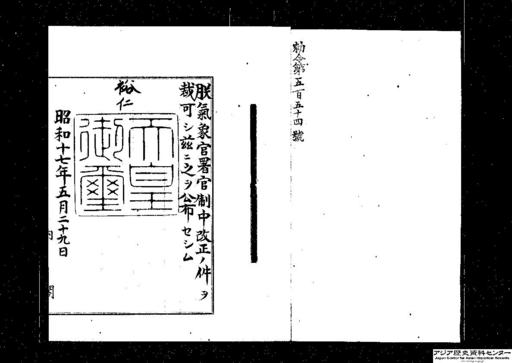 勅令第五百五十四號
朕氣象官署官制中改正ノ件ヲ
裁可シ茲ニ之ヲ公布セシム
裕仁
天皇
御璽
昭和十七年五月二十九日
内閣
アジア歴史資料センター
Japan Center for Asian Historical Records